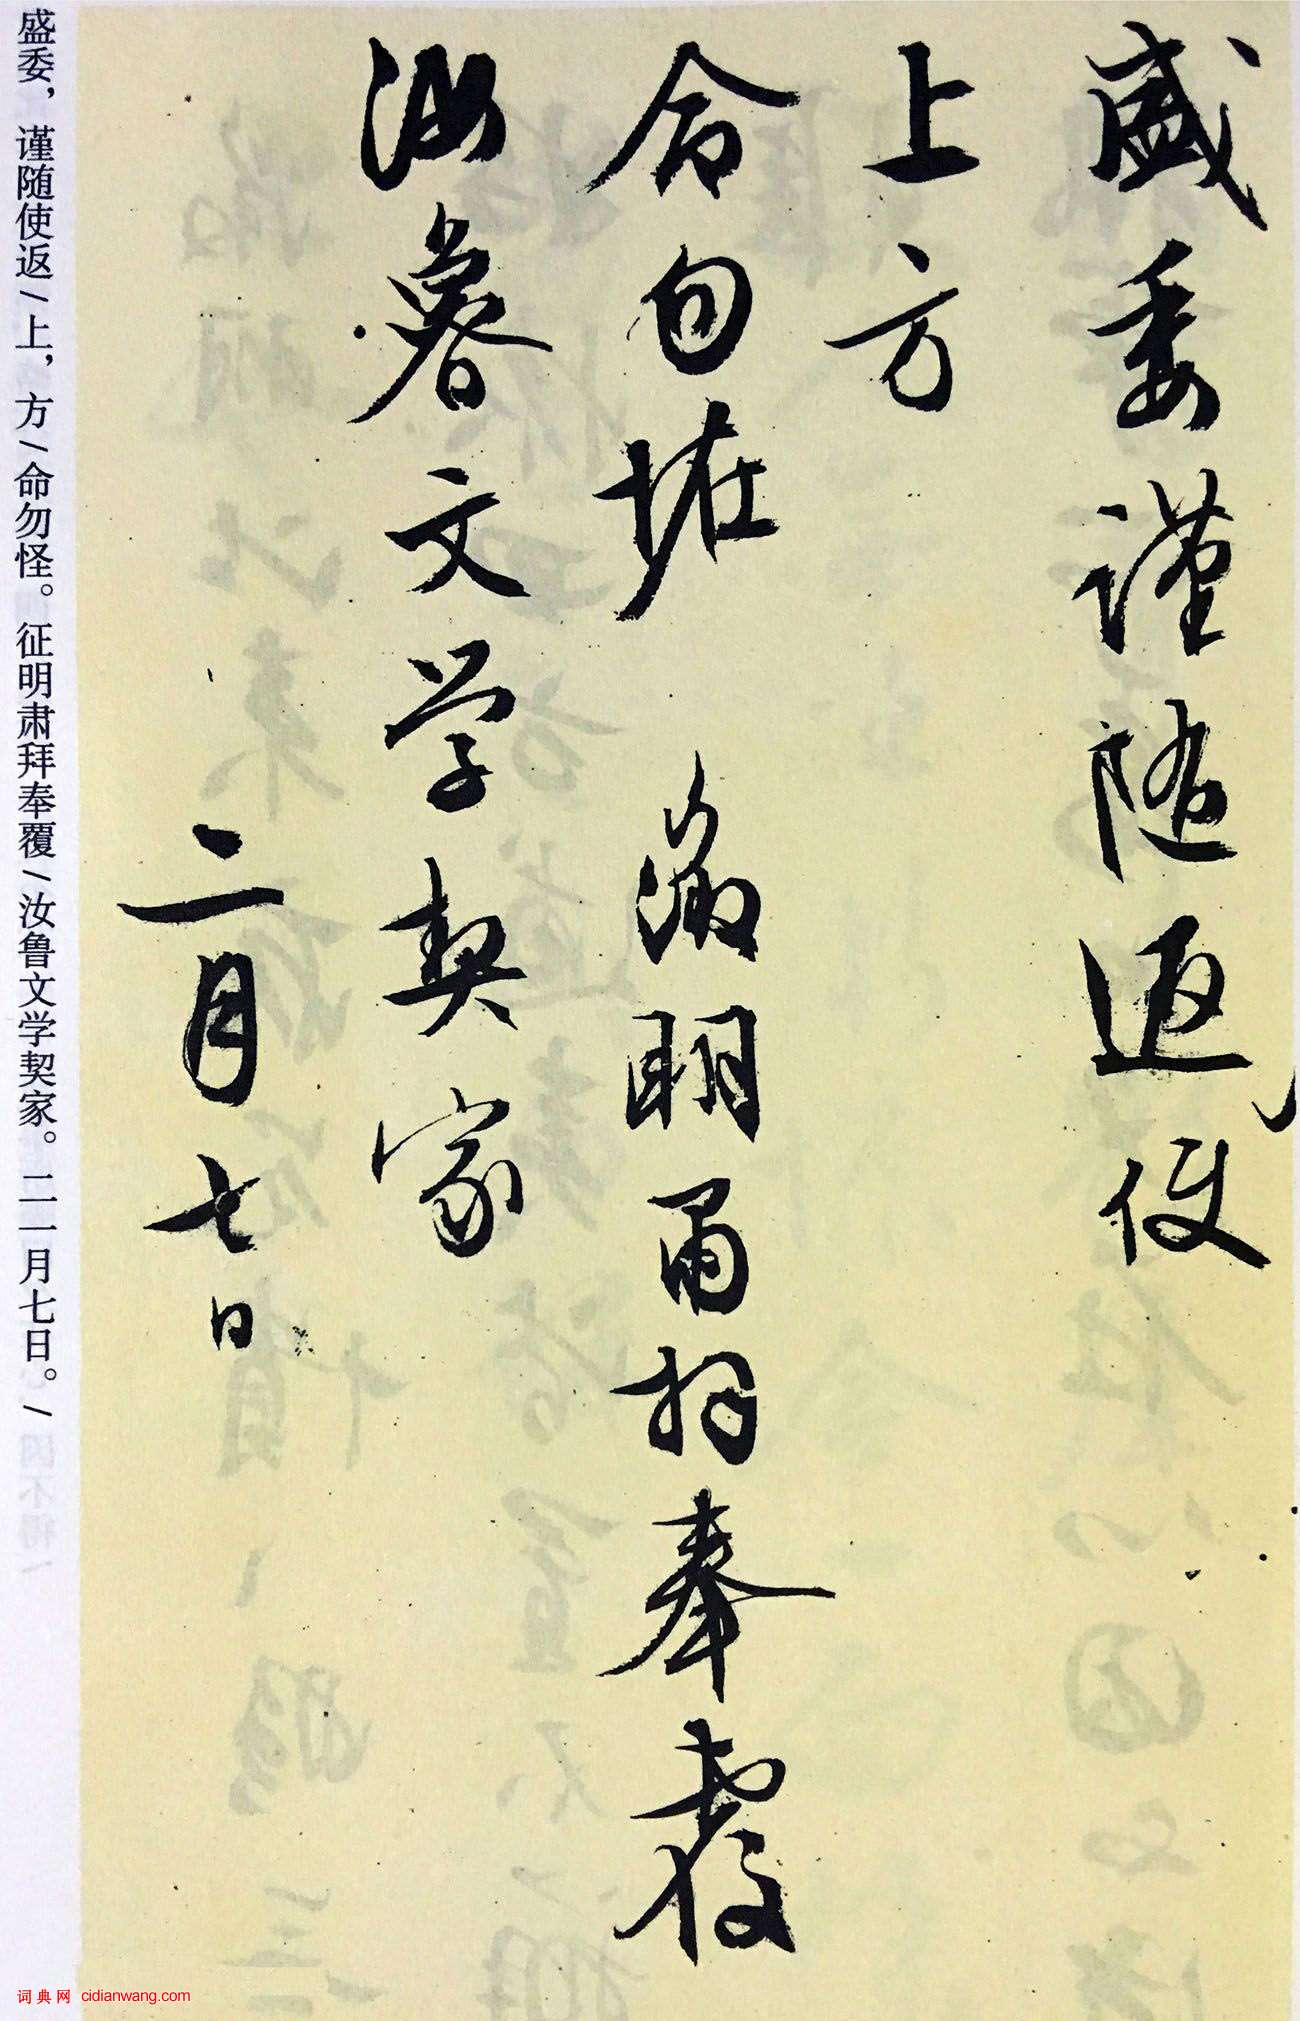 盛委謹隨返使
上方
命勿恠 徵明肅拜奉覆
汝魯文学契家
二月七日
盛委，谨随使返/上，方/命勿怪。征明肃拜奉覆/汝鲁文学契家。二一月七日。/
词典网 cidianwang.com